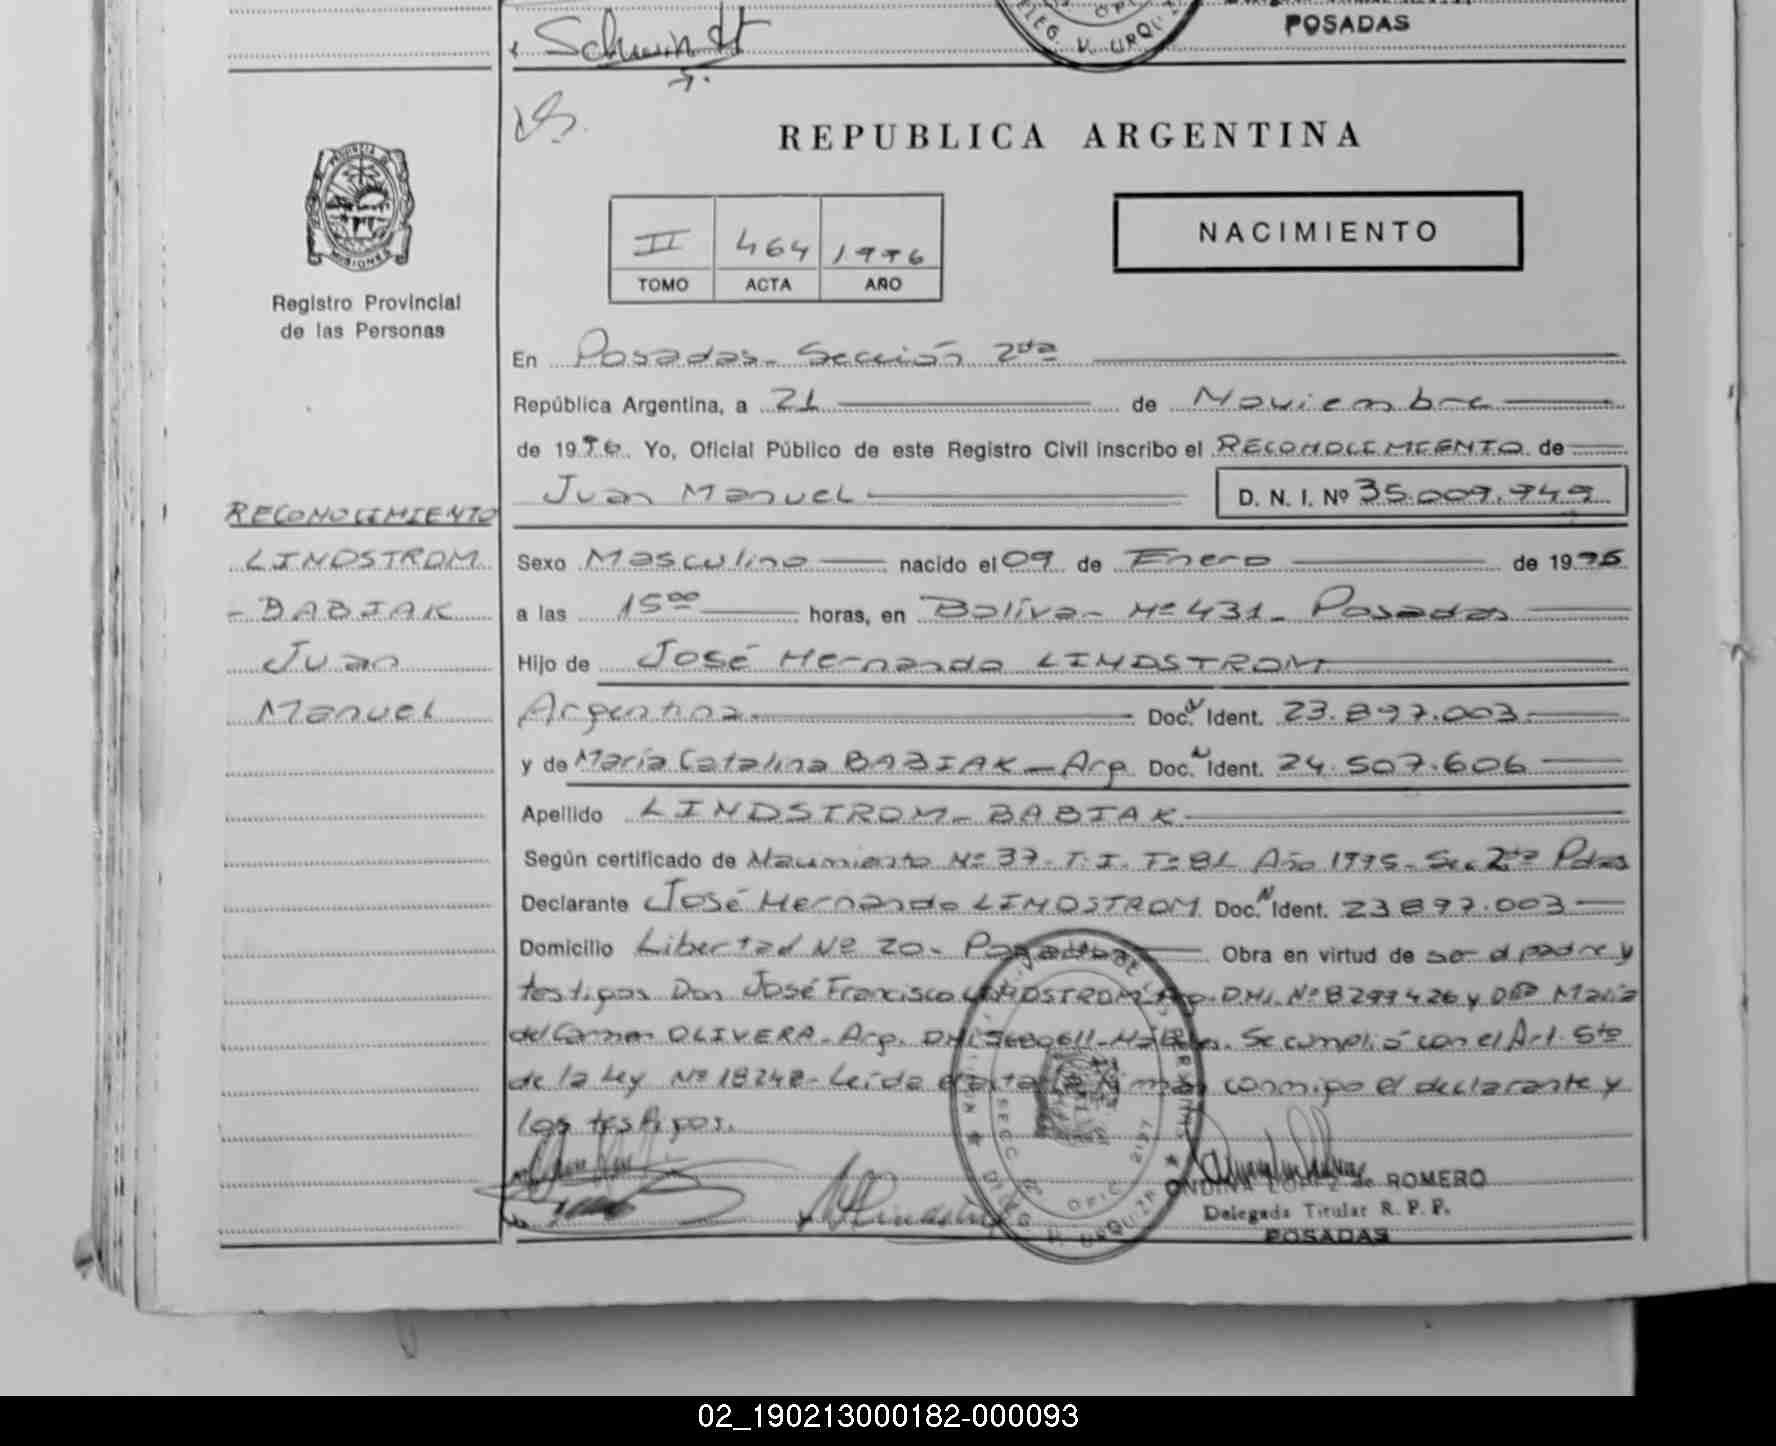 Schwindt
DELEG. V. URQUIZA
OFIC.
POSADAS
REPUBLICA ARGENTINA
PROVINCIA DE
MISIONES
Registro Provincial
de las Personas
II 464 1996
TOMO ACTA AÑO
NACIMIENTO
En Posadas - Sección 2da
República Argentina, a 21 de Noviembre
de 1996. Yo, Oficial Público de este Registro Civil inscribo el RECONOCIMIENTO de
Juan Manuel D. N. I. Nº 35.009.949
RECONOCIMIENTO
LINDSTROM
- BABIAK
Juan
Manuel
Sexo Masculino nacido el 09 de Enero de 1995
a las 15⁰⁰ horas, en Bolívar Nº 431 - Posadas
Hijo de José Hernando LINDSTROM
Argentina Doc. N Ident. 23.897.003
y de María Catalina BABIAK - Arg. Doc. N Ident. 24.507.606
Apellido LINDSTROM - BABIAK
Según certificado de Nacimiento Nº 37 - T. I. Fº 81 Año 1995 - Sec. 2da Pdas
Declarante José Hernando LINDSTROM Doc. N Ident. 23.897.003
Domicilio Libertad Nº 20 - Posadas Obra en virtud de ser el padre y
testigos Don José Francisco LINDSTROM Arg. DNI. Nº 8299426 y Dña María
del Carmen OLIVERA - Arg. DNI Se cumplió con el Art. 5to
de la Ley Nº 18248 - Leída el acta la firman conmigo el declarante y
los testigos.
SECC OFIC. 2177
DELEG. V. URQUIZA
ONDINA LOPEZ de ROMERO
Delegada Titular R. P. P.
POSADAS
02_190213000182-000093